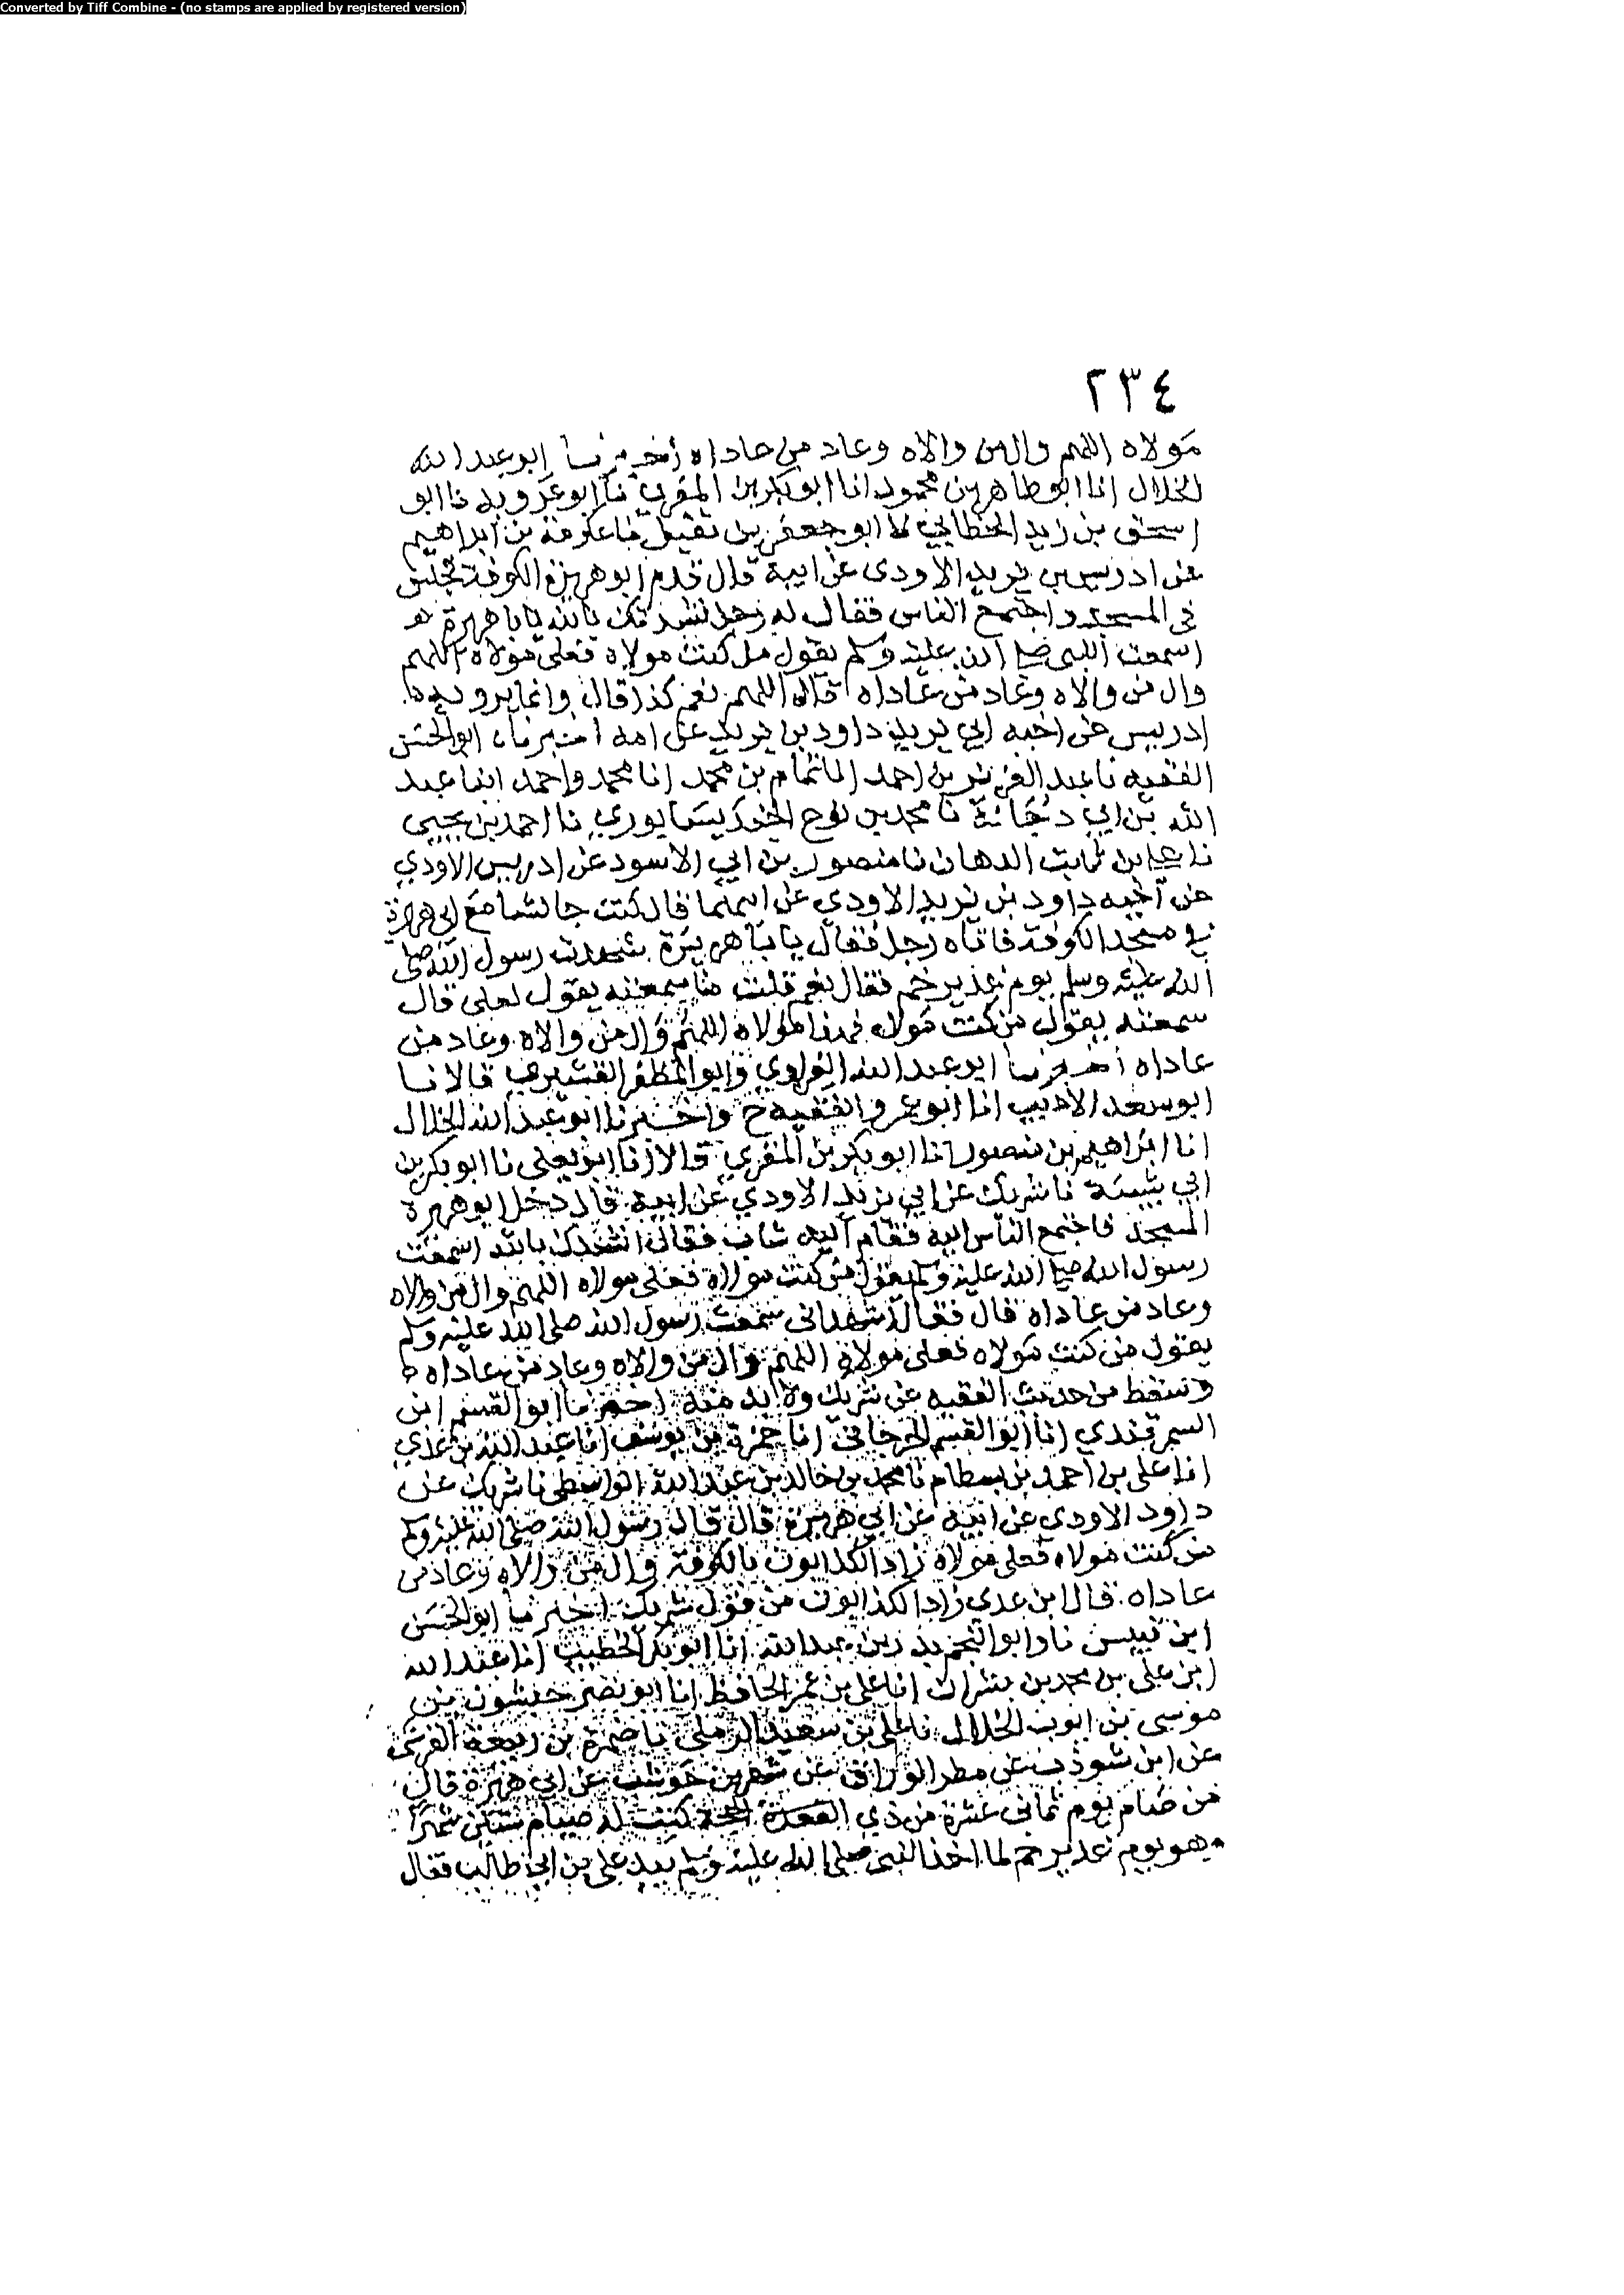 Converted by Tiff Combine - (no stamps are applied by registered version)
٢٣٤
مولاه اللهم وال من والاه وعاد من عاداه أخبرنا ابو عبد الله
الخلال انا ابو طاهر بن محمود انا ابو بكر بن المقري نا ابو عروبه نا ابو
اسحق بن زيد الخطابي نا ابو جعفر بن نفيل نا عكرمة بن ابراهيم
عن ادريس بن يزيد الاودى عن ابيه قال قدم ابو هريرة الكوفة فجلس
فى المسجد واجتمع الناس فقال له رجل نشدتك بالله يابا هريرة
اسمعت النبى صلى الله عليه وسلم يقول من كنت مولاه فعلى مولاه اللهم
وال من والاه وعاد من عاداه قال اللهم نعم كذا قال وانما يرويه
ادريس عن اخيه ابي يزيد داود بن يزيد عن ابيه اخبرناه ابو الحسن
الفقيه نا عبد العزيز بن احمد انا تمام بن محمد انا محمد واحمد ابنا عبد
الله بن ابي دجانة نا محمد بن نوح الجنديسابوري نا احمد بن يحيى
نا علي بن ثابت الدهان نا منصور بن ابي الاسود عن ادريس الاودي
عن اخيه داود بن يزيد الاودي عن ابيهما قال كنت جالسا مع ابى هريرة
في مسجد الكوفة فاتاه رجل فقال يابا هريرة شهدت رسول الله صلى
الله عليه وسلم يوم غدير خم فقال نعم قلت ما سمعته يقول لعلى قال
سمعته يقول من كنت مولاه فهذا مولاه اللهم وال من والاه وعاد من
عاداه أخبرنا ابو عبد الله الفراوي وابو المظفر القشيري قالا نا
ابو سعد الاديب انا ابو عمرو الفقيه ح واخبرنا ابو عبد الله الخلال
انا ابراهيم بن منصور انا ابو بكر بن المقري قالا انا ابو يعلى نا ابو بكر بن
ابي شيبة نا شريك عن ابي يزيد الاودي عن ابيه قال دخل ابو هريرة
المسجد فاجتمع الناس اليه فقام اليه شاب فقال انشدك بالله اسمعت
رسول الله صلى الله عليه وسلم يقول من كنت مولاه فعلى مولاه اللهم وال من والاه
وعاد من عاداه قال فقال اشهد انى سمعت رسول الله صلى الله عليه وسلم
يقول من كنت مولاه فعلى مولاه اللهم وال من والاه وعاد من عاداه
وسقط من حديث الفقيه عن شريك ولا بد منه اخبرنا ابو القسم ابن
السمرقندي انا ابو القسم الجرجانى انا حمزة بن يوسف انا عبد الله بن عدي
انا على بن احمد بن بسطام نا محمد بن خالد بن عبد الله الواسطى نا شريك عن
داود الاودي عن ابيه عن ابي هريرة قال قال رسول الله صلى الله عليه وسلم
من كنت مولاه فعلى مولاه زاد الكذابون بالكوفة وال من والاه وعاد من
عاداه قال ابن عدي زاد الكذابون من قول شريك اخبرنا ابو الحسن
ابن قبيس نا وابو النجم بدر بن عبد الله انا ابو بكر الخطيب انا عبد الله
ابن على بن محمد بن بشران انا على بن عمر الحافظ انا ابو نصر حبشون بن
موسى بن ايوب الخلال نا على بن سعيد الرملى نا ضمرة بن ربيعة القرشى
عن ابن شوذب عن مطر الوراق عن شهر بن حوشب عن ابي هريرة قال
من صام يوم ثمانى عشرة من ذي الحجة كتب له صيام ستين شهرا
وهو يوم غدير خم لما اخذ النبى صلى الله عليه وسلم بيد على بن ابى طالب فقال